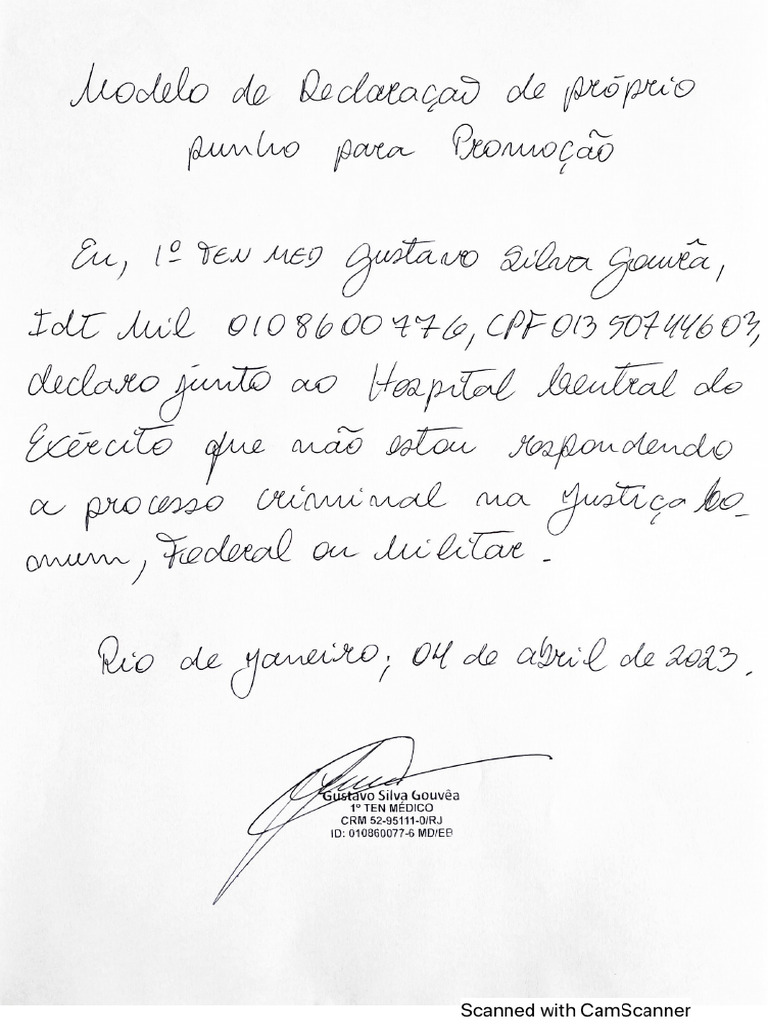 Modelo de Declaração de próprio
punho para Promoção
Eu, 1º TEN MED Gustavo Silva Gouvêa,
Idt Mil 0108600776, CPF 01350744603,
declaro junto ao Hospital Central do
Exército que não estou respondendo
a processo criminal na Justiça Co-
mum, Federal ou Militar.
Rio de Janeiro, 04 de abril de 2023.
Gustavo Silva Gouvêa
1º TEN MÉDICO
CRM 52-95111-0/RJ
ID: 010860077-6 MD/EB
Scanned with CamScanner